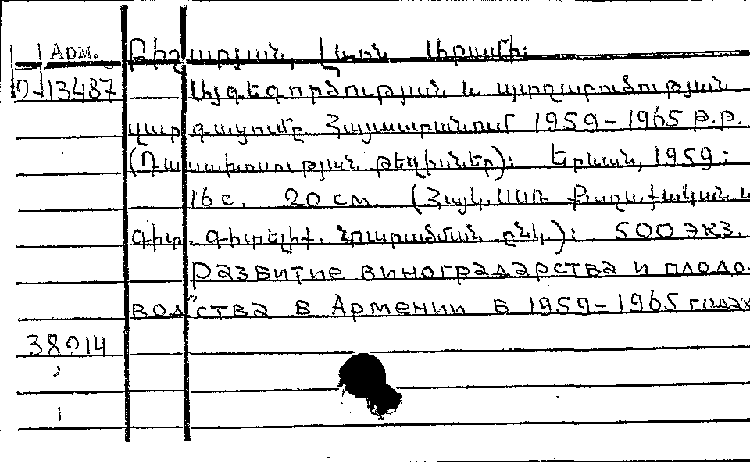 Арм. Բիշարյան, Լևոն Արամի:
Դ-13487 Այգեգործության և պտղաբուծության
զարգացումը Հայաստանում 1959-1965 թ.թ.
(Դասախոսության թեզիսներ): Երևան, 1959:
16 с. 20 см (Հայկ. ՍՍՌ Քաղաքական և
գիտ. գիտելիք. տարածման ընկ.): 500 экз.
Развитие виноградарства и плодо-
водства в Армении в 1959-1965 годах
38014
2
1